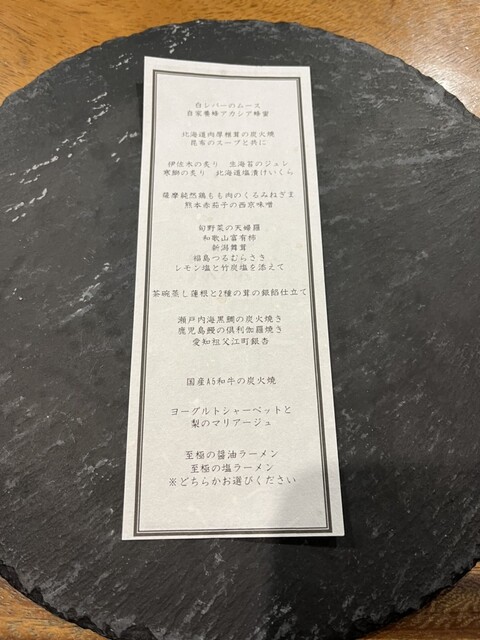 白レバーのムース
自家養蜂アカシア蜂蜜
北海道肉厚椎茸の炭火焼
昆布のスープと共に
伊佐木の炙り 生海苔のジュレ
寒鰤の炙り 北海道塩漬けいくら
薩摩純然鶏もも肉のくるみねぎま
熊本赤茄子の西京味噌
旬野菜の天婦羅
和歌山富有柿
新潟舞茸
福島つるむらさき
レモン塩と竹炭塩を添えて
茶碗蒸し蓮根と2種の茸の銀餡仕立て
瀬戸内海黒鯛の炭火焼き
鹿児島鰻の倶利伽羅焼き
愛知祖父江町銀杏
国産A5和牛の炭火焼
ヨーグルトシャーベットと
梨のマリアージュ
至極の醤油ラーメン
至極の塩ラーメン
※どちらかお選びください